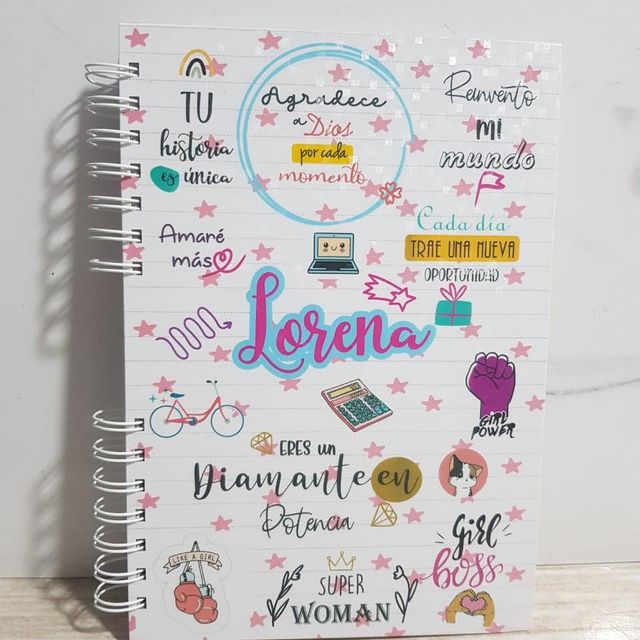 TU
historia
es única
Agradece
a Dios
por cada
momento
Reinvento
mi
mundo
Amaré
más
Cada día
TRAE UNA NUEVA
OPORTUNIDAD
Lorena
GIRL
POWER
ERES UN
Diamante en
Potencia
LIKE A GIRL
SUPER
WOMAN
Girl
boss